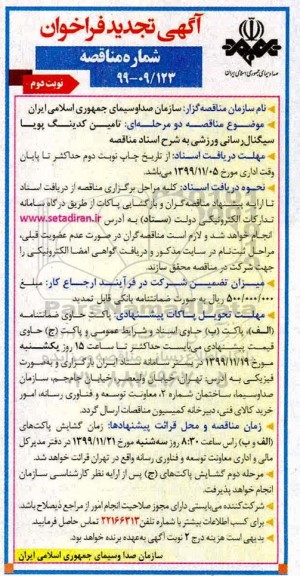 آگهی تجدید فراخوان
شماره مناقصه
۹۹-۰۹/۱۲۳
نوبت دوم
صدا وسیمای جمهوری اسلامی ایران
نام سازمان مناقصه‌گزار: سازمان صداوسیمای جمهوری اسلامی ایران
موضوع مناقصه دو مرحله‌ای: تامین کدینگ پویا
سیگنال‌رسانی ورزشی به شرح اسناد مناقصه
مهلت دریافت اسناد: از تاریخ چاپ نوبت دوم حداکثر تا پایان
وقت اداری مورخ ۱۳۹۹/۱۱/۰۵ می‌باشد.
نحوه دریافت اسناد: کلیه مراحل برگزاری مناقصه از دریافت اسناد
تا ارایه پیشنهاد مناقصه‌گران و بازگشایی پاکات از طریق درگاه سامانه
تدارکات الکترونیکی دولت (ستاد) به آدرس www.setadiran.ir
انجام خواهد شد و لازم است مناقصه‌گران در صورت عدم عضویت قبلی،
مراحل ثبت‌نام در سایت مذکور و دریافت گواهی امضا الکترونیکی را
جهت شرکت در مناقصه محقق سازند.
میزان تضمین شرکت در فرآیند ارجاع کار: مبلغ
۵۰۰/۰۰۰/۰۰۰ ریال به صورت ضمانتنامه بانکی قابل تمدید
مهلت تحویل پاکات پیشنهادی: پاکت حاوی ضمانتنامه
(الف)، پاکت (ب) حاوی اسناد و شرایط عمومی و پاکت (ج) حاوی
قیمت پیشنهادی می‌بایست حداکثر تا ساعت ۱۵ روز یکشنبه
مورخ ۱۳۹۹/۱۱/۱۹ در بستر سامانه ستاد ایران بارگزاری و به‌صورت
فیزیکی به آدرس: تهران، خیابان ولیعصر، خیابان جام‌جم، سازمان
صداوسیما، ساختمان شماره ۲، معاونت توسعه و فناوری رسانه، امور
خرید کالای فنی، دبیرخانه کمیسیون مناقصات ارسال گردد.
زمان مناقصه و محل قرائت پیشنهادها: زمان گشایش پاکت‌های
(الف و ب) راس ساعت ۸:۳۰ روز سه‌شنبه مورخ ۱۳۹۹/۱۱/۲۱ در دفتر مدیرکل
مالی و اداری معاونت توسعه و فناوری رسانه واقع در تهران قرائت خواهد شد.
مرحله دوم گشایش پاکت‌های (ج) پس از ارایه نظر کارشناسی سازمان
انجام خواهد پذیرفت.
شرکت‌کننده می‌بایستی دارای مجوز صلاحیت انجام امور از مراجع ذیصلاح باشد.
برای کسب اطلاعات بیشتر با شماره تلفن ۲۲۱۶۶۳۱۳ تماس حاصل فرمایید
بدیهی است هزینه درج ۲ نوبت آگهی به‌عهده برنده خواهد بود.
سازمان صدا وسیمای جمهوری اسلامی ایران